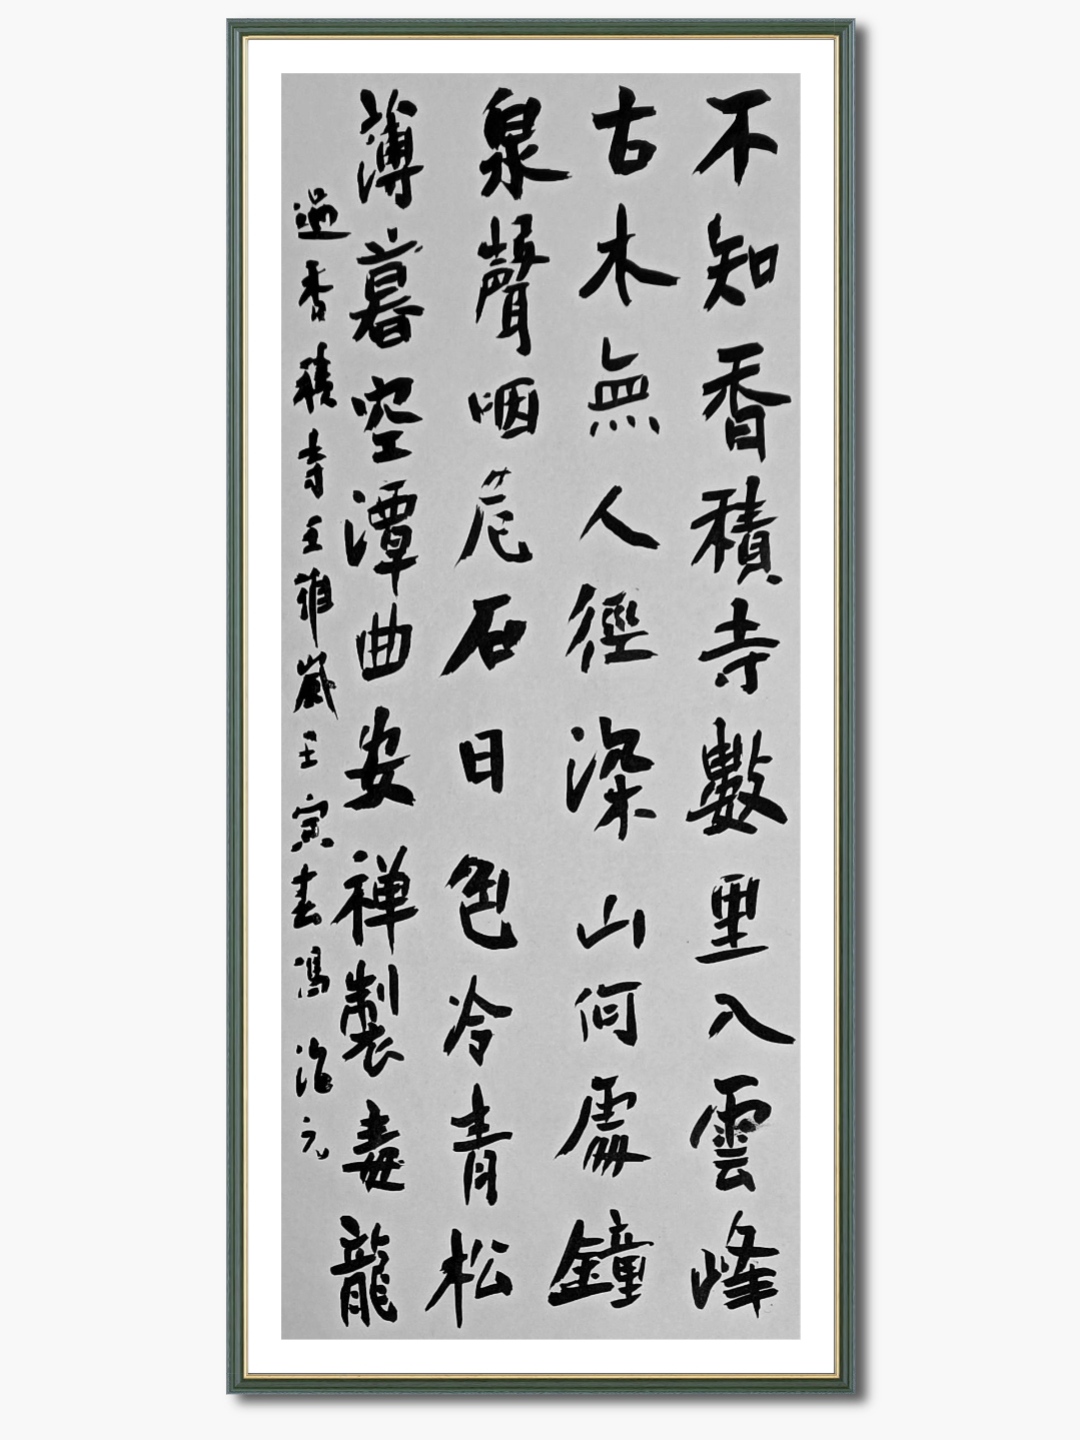 不知香積寺數里入雲峰
古木無人徑深山何處鐘
泉聲咽危石日色冷青松
薄暮空潭曲安禪製毒龍
過香積寺王維歲壬寅春馮治元